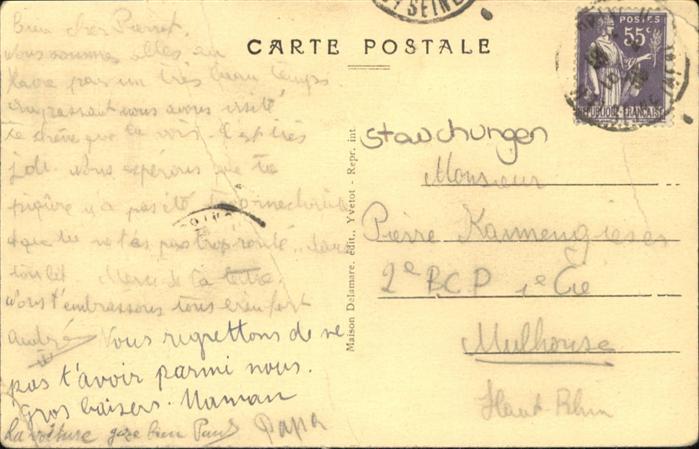 Y SEINE
CARTE POSTALE
POSTES
55c
REPUBLIQUE FRANÇAISE
Bien cher Pierrot,
Nous sommes allés au
Havre par un très beau temps
en passant nous avons visité
le chêne que tu vois. Il est très
joli. Nous espérons que ta
piqûre n'a pas été trop
et que tu ne t'es pas trop
ton lit Merci de ta lettre
Nous t'embrassons tous bien fort
André
Vous regrettons de ne
pas t'avoir parmi nous.
Gros baisers. Maman
La voiture gaze bien Paul Papa
Maison Delamare, édit., Yvetot - Repr. int.
Stauchungen
Monsieur
Pierre Kammengieser
2e BCP 1e Cie
Mulhouse
Haut Rhin